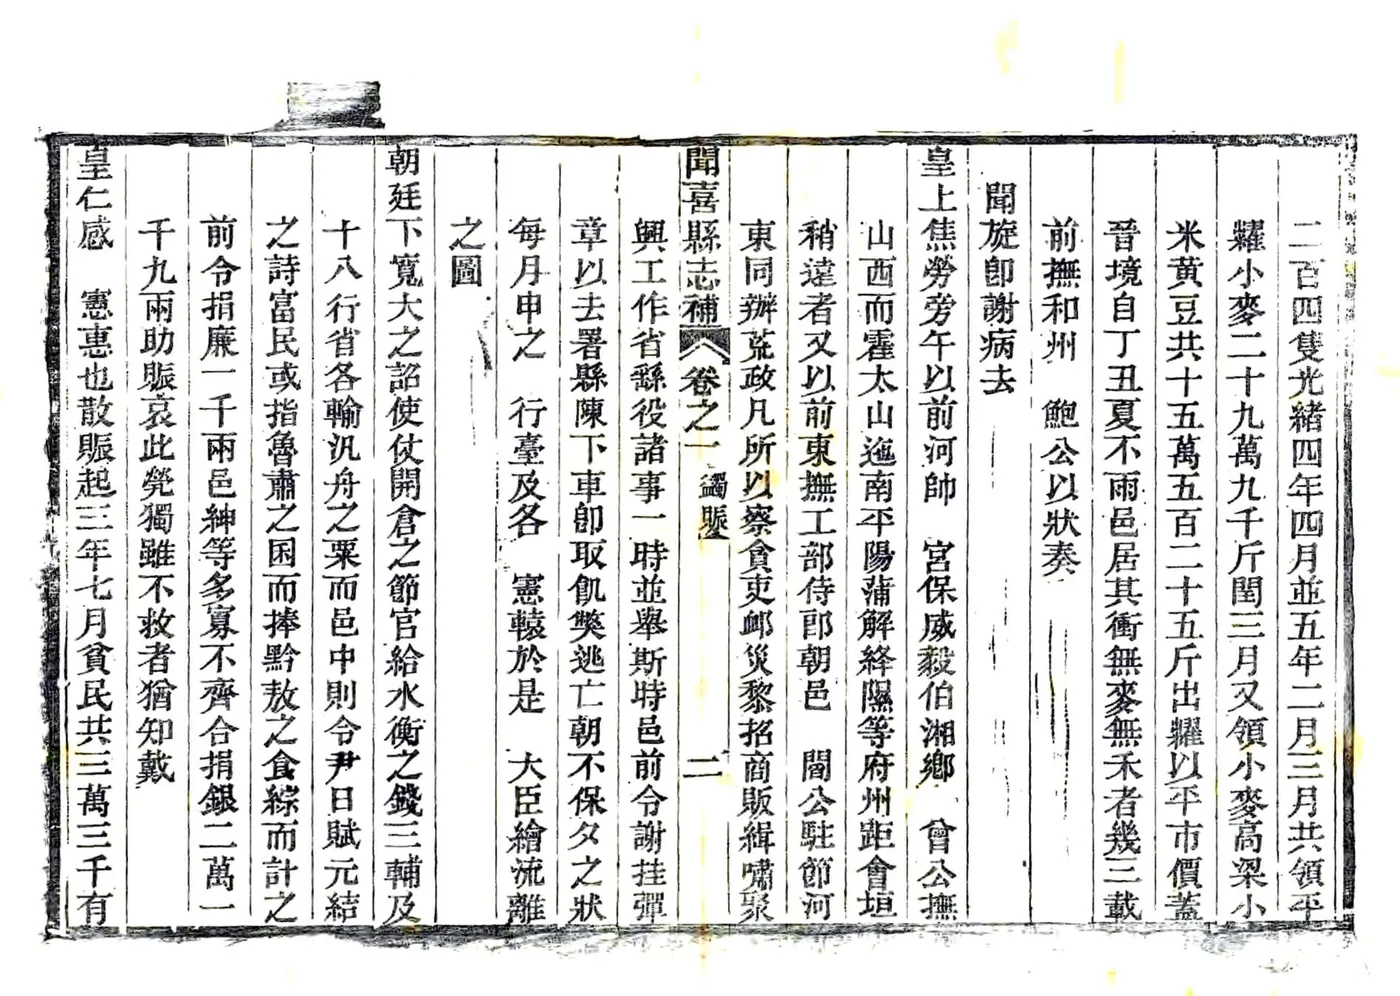 二百四隻光緒四年四月並五年二月三月共領平
糶小麥二十九萬九千斤閏三月又領小麥高梁小
米黃豆共十五萬五百二十五斤出糶以平市價蓋
晉境自丁丑夏不雨邑居其衝無麥無禾者幾三載
前撫和州　鮑公以狀奏
聞旋卽謝病去
皇上焦勞旁午以前河帥　宮保威毅伯湘鄉　曾公撫
山西而霍太山迤南平陽蒲解絳隰等府州距會垣
稍遠者又以前東撫工部侍郎朝邑　閻公駐節河
東同辦荒政凡所以察貪吏卹災黎招商販緝嘯聚
聞喜縣志補　卷之一　蠲賑　二
興工作省繇役諸事一時並舉斯時邑前令謝挂彈
章以去署縣陳下車卽取飢獘逃亡朝不保夕之狀
每月申之　行臺及各　憲轅於是　大臣繪流離
之圖
朝廷下寬大之詔使仗開倉之節官給水衡之錢三輔及
十八行省各輸汎舟之粟而邑中則令尹日賦元結
之詩富民或指魯肅之囷而捧黔敖之食綜而計之
前令捐廉一千兩邑紳等多寡不齊合捐銀二萬一
千九兩助賑哀此煢獨雖不救者猶知戴
皇仁感　憲惠也散賑起三年七月貧民共三萬三千有